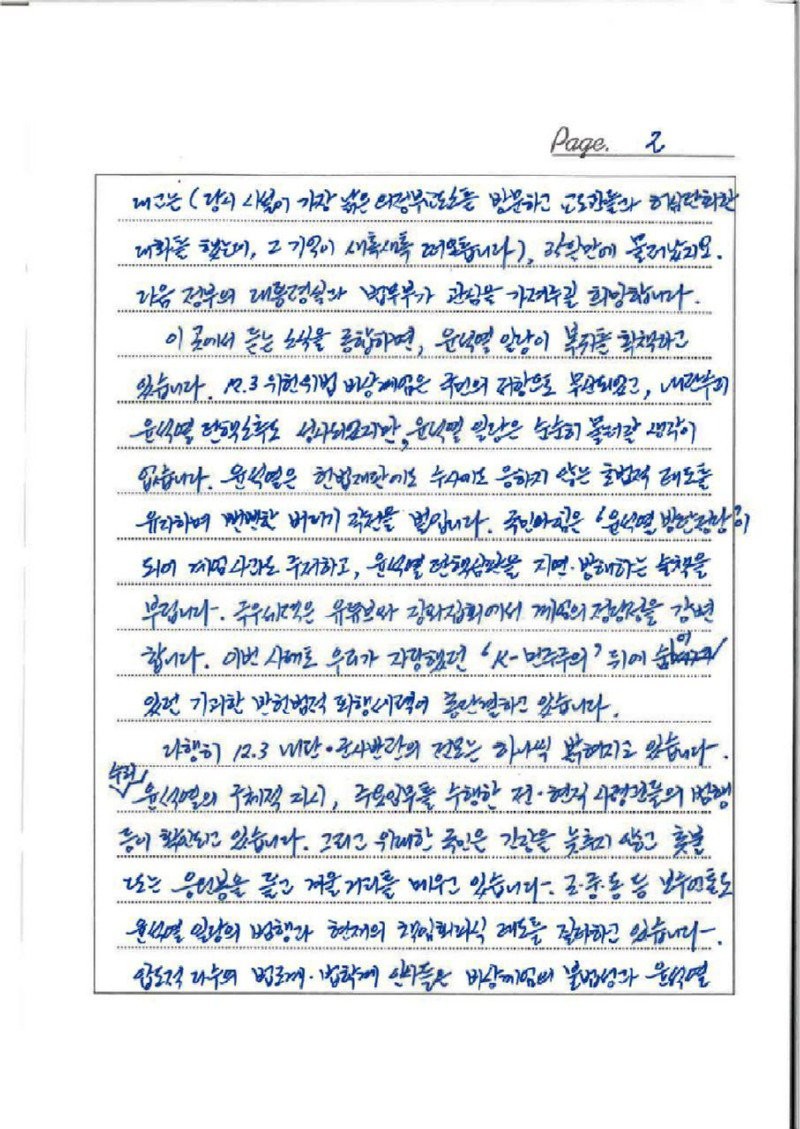 Page. 2
(당시 시설이 가장 낡은 의정부교도소를 방문하고 교도관들과 허심탄회한
대화를 했는데, 그 기억이 새록새록 떠오릅니다), 만에 물러났지요.
다음 정부의 대통령실과 법무부가 관심을 가져주길 희망합니다.
이 곳에서 듣는 소식을 종합하면, 윤석열 일당이 복귀를 획책하고
있습니다. 12.3 위헌위법 비상계엄은 국민의 저항으로 무산되었고, 내란수괴
윤석열 탄핵소추도 성사되었지만, 윤석열 일당은 순순히 물러갈 생각이
없습니다. 윤석열은 헌법재판에도 수사에도 응하지 않는 초법적 태도를
유지하며 뻔뻔한 버티기 작전을 벌입니다. 국민의힘은 '윤석열 방탄정당'이
되어 계엄 사과도 주저하고, 윤석열 탄핵심판을 지연·방해하는 술책을
부립니다. 극우세력은 유튜브와 집회에서 계엄의 정당성을 강변
합니다. 이번 사태로 우리가 자랑했던 'K-민주주의' 뒤에 숨어
있던 기괴한 반헌법적 퇴행세력이 총단결하고 있습니다.
다행히 12.3 내란·군사반란의 전모는 하나씩 밝혀지고 있습니다.
수괴 윤석열의 구체적 지시, 주요임무를 수행한 전·현직 사령관들의 범행
등이 확인되고 있습니다. 그리고 위대한 국민은 긴장을 늦추지 않고 촛불
또는 응원봉을 들고 겨울 거리를 메우고 있습니다. 조·중·동 등 보수언론도
윤석열 일당의 범행과 현재의 책임회피식 태도를 질타하고 있습니다.
압도적 다수의 법조계·법학계 인사들은 비상계엄의 불법성과 윤석열